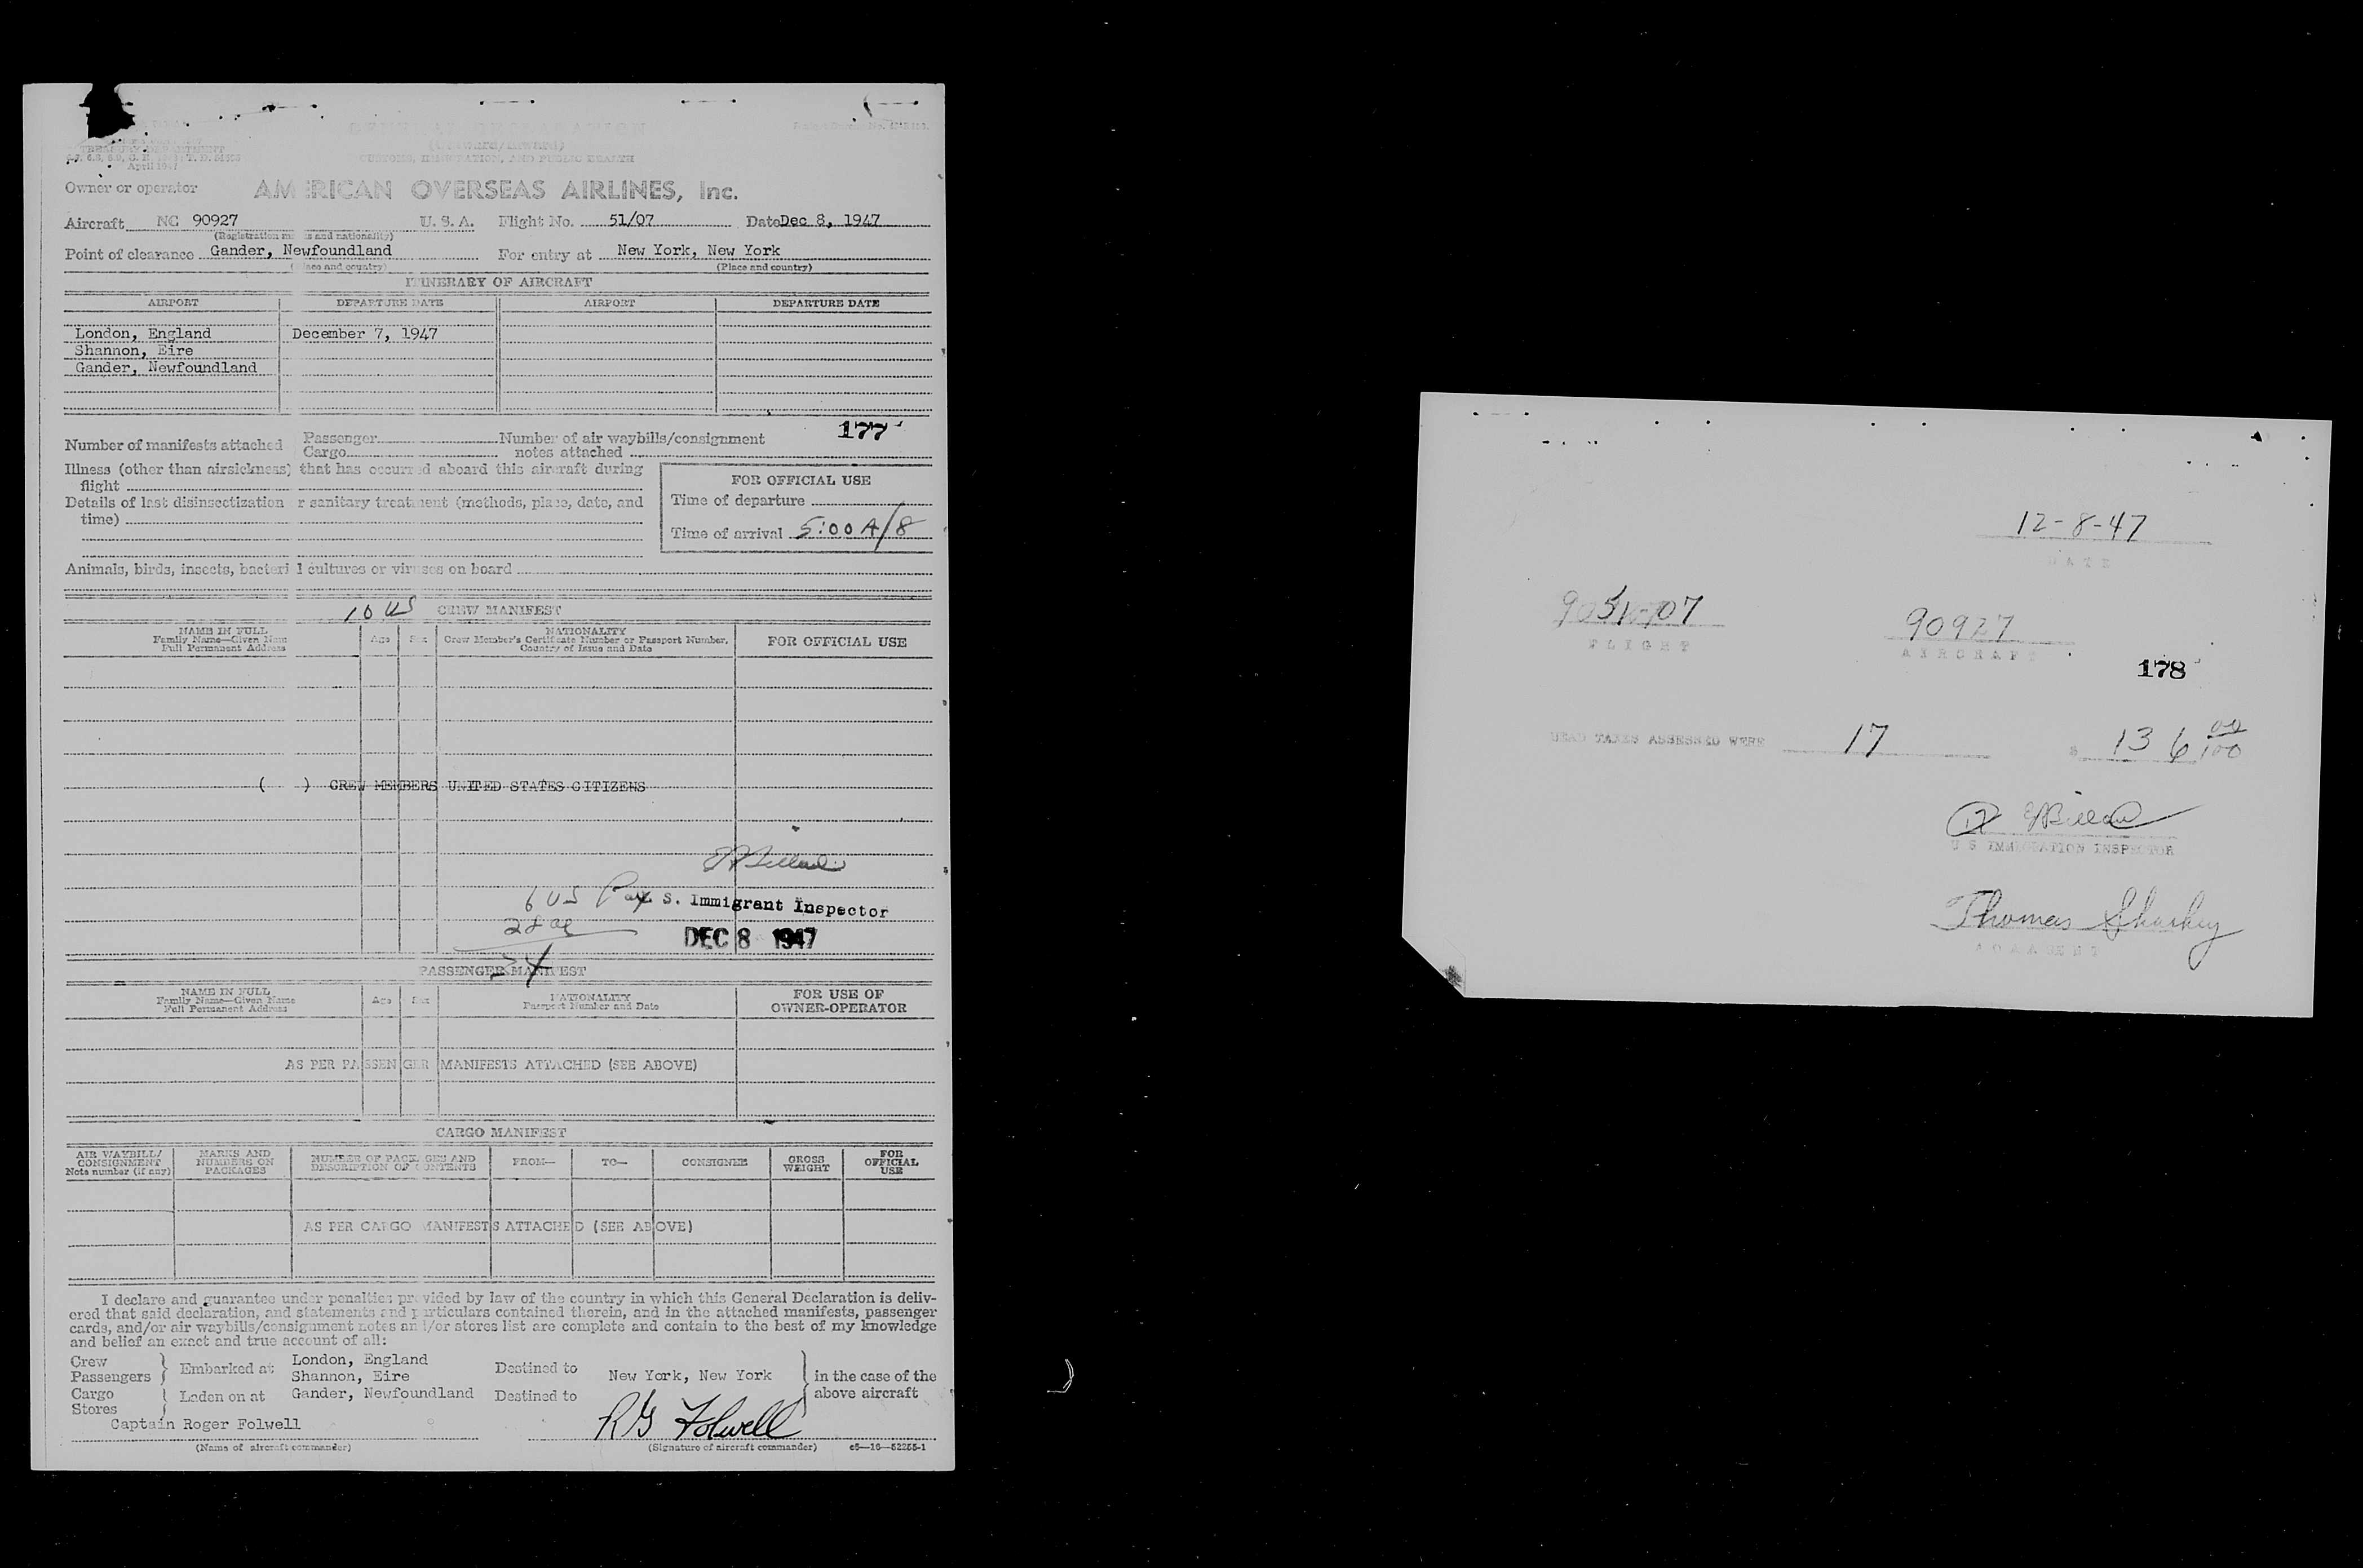 GENERAL DECLARATION
(Outward/Inward)
CUSTOMS, IMMIGRATION, AND PUBLIC HEALTH
TREASURY DEPARTMENT
April 1947
Owner or operator AMERICAN OVERSEAS AIRLINES, Inc.
Aircraft NC 90927 U. S. A. Flight No. 51/07 Date Dec 8, 1947
(Registration marks and nationality)
Point of clearance Gander, Newfoundland For entry at New York, New York
(Place and country) (Place and country)
ITINERARY OF AIRCRAFT
AIRPORT DEPARTURE DATE AIRPORT DEPARTURE DATE
London, England December 7, 1947
Shannon, Eire
Gander, Newfoundland
177
Number of manifests attached Passenger Number of air waybills/consignment
Cargo notes attached
Illness (other than airsickness) that has occurred aboard this aircraft during
flight
FOR OFFICIAL USE
Details of last disinsectization or sanitary treatment (methods, place, date, and
time)
Time of departure
Time of arrival 5:00 A/8
Animals, birds, insects, bacterial cultures or viruses on board
10 US CREW MANIFEST
NAME IN FULL
Family Name—Given Name
Full Permanent Address
Age Sex
NATIONALITY
Crew Member's Certificate Number or Passport Number,
Country of Issue and Date
FOR OFFICIAL USE
( ) CREW MEMBERS UNITED STATES CITIZENS
6 US Pax S. Immigrant Inspector
28 al
DEC 8 1947
34
PASSENGER MANIFEST
NAME IN FULL
Family Name—Given Name
Full Permanent Address
Age Sex
NATIONALITY
Passport Number and Date
FOR USE OF
OWNER-OPERATOR
AS PER PASSENGER MANIFESTS ATTACHED (SEE ABOVE)
CARGO MANIFEST
AIR WAYBILL/
CONSIGNMENT
Note number (if any)
MARKS AND
NUMBERS ON
PACKAGES
NUMBER OF PACKAGES AND
DESCRIPTION OF CONTENTS
FROM— TO— CONSIGNEE
GROSS
WEIGHT
FOR
OFFICIAL
USE
AS PER CARGO MANIFESTS ATTACHED (SEE ABOVE)
I declare and guarantee under penalties provided by law of the country in which this General Declaration is deliv-
ered that said declaration, and statements and particulars contained therein, and in the attached manifests, passenger
cards, and/or air waybills/consignment notes and/or stores list are complete and contain to the best of my knowledge
and belief an exact and true account of all:
Crew
Passengers } Embarked at London, England
Shannon, Eire Destined to New York, New York } in the case of the
Cargo
Stores } Laden on at Gander, Newfoundland Destined to above aircraft
Captain Roger Folwell RG Folwell
(Name of aircraft commander) (Signature of aircraft commander) c5—16—52255-1
12-8-47
DATE
51-07 90927
FLIGHT AIRCRAFT
178
HEAD TAXES ASSESSED WERE 17 $ 136 00/100
17
U S IMMIGRATION INSPECTOR
Thomas Sharkey